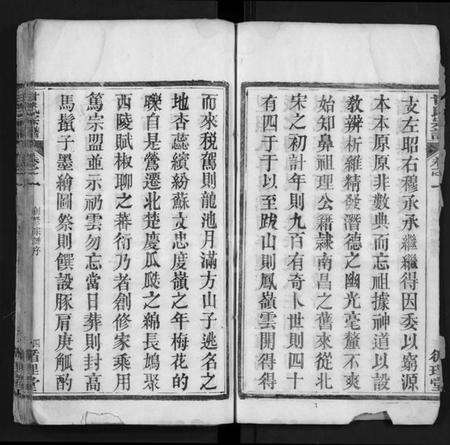 支左昭右穆承承繼繼得因委以窮源
本本原原非數典而忘祖據神道以設
教辨析維精發潛德之幽光毫釐不爽
始知鼻祖理公籍隸南昌之舊來從北
宋之初計年則九百有奇卜世則四十
有四于于以至跋山則鳳嶺雲開得得
而來税駕則龍池月滿方山子逃名之
地杏蕊繽紛蘇文忠度嶺之年梅花的
皪自是鶯遷北楚慶瓜瓞之綿長鴆聚
西陵賦椒聊之蕃衍乃者創修家乘用
篤宗盟並示礽雲勿忘當日葬則封高
馬鬛子墨繪圖祭則饌設豚肩庚觚酌
卷之一
四